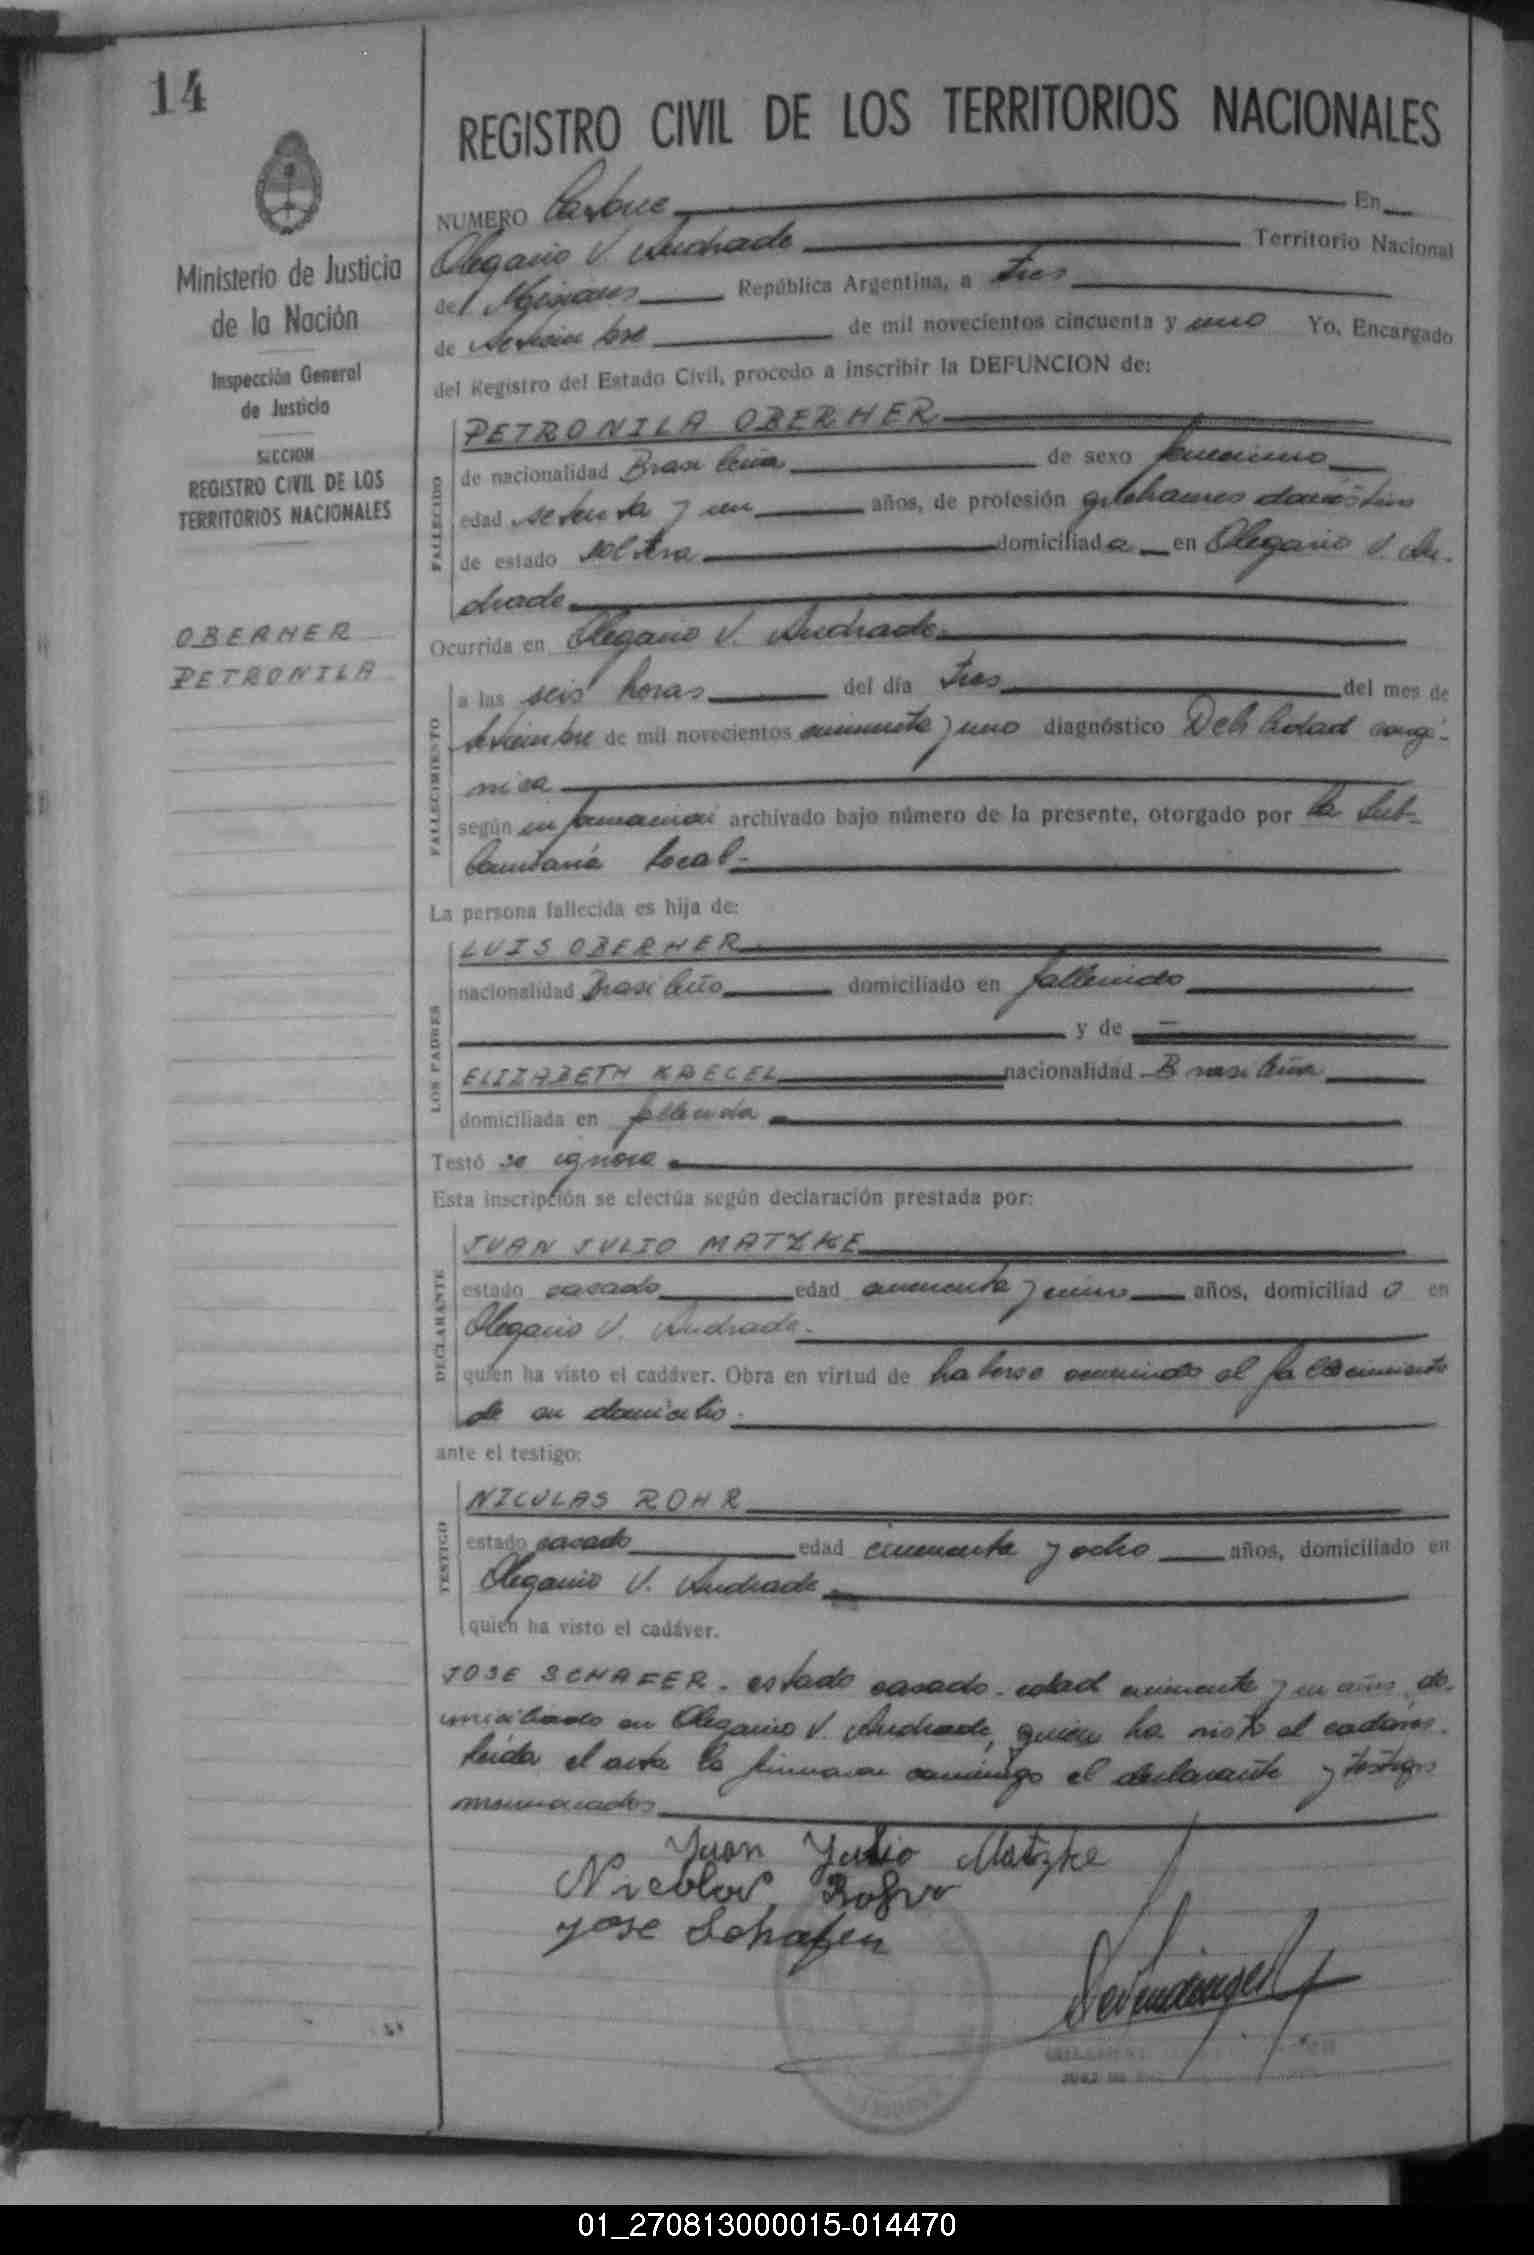 14
REGISTRO CIVIL DE LOS TERRITORIOS NACIONALES
Ministerio de Justicia
de la Nación
Inspección General
de Justicia
SECCION
REGISTRO CIVIL DE LOS
TERRITORIOS NACIONALES
OBERHER
PETRONILA
NUMERO Catorce En
Olegario V. Andrade Territorio Nacional
de Misiones República Argentina, a tres
de setiembre de mil novecientos cincuenta y uno Yo, Encargado
del Registro del Estado Civil, procedo a inscribir la DEFUNCION de:
FALLECIDO
PETRONILA OBERHER
de nacionalidad Brasileña de sexo femenino
edad setenta y un años, de profesión quehaceres domésticos
de estado soltera domiciliada en Olegario V. An-
drade
Ocurrida en Olegario V. Andrade.
FALLECIMIENTO
a las seis horas del día tres del mes de
setiembre de mil novecientos cincuenta y uno diagnóstico Debilidad congé-
nica
según información archivado bajo número de la presente, otorgado por la Sub-
Comisaría local.-
La persona fallecida es hija de:
LOS PADRES
LUIS OBERHER
nacionalidad Brasileño domiciliado en fallecido
y de
ELIZABETH KRECEL nacionalidad Brasileña
domiciliada en fallecida
Testó se ignora
Esta inscripción se efectúa según declaración prestada por:
DECLARANTE
JUAN JULIO MATZKE
estado casado edad cincuenta y años, domiciliad o en
Olegario V. Andrade.
quien ha visto el cadáver. Obra en virtud de haberse ocurrido el fallecimiento
de su domicilio.
ante el testigo:
TESTIGO
NICOLAS ROHR
estado casado edad cincuenta y ocho años, domiciliado en
Olegario V. Andrade
quien ha visto el cadáver.
JOSE SCHAFER. estado casado. edad cincuenta y un años, do-
miciliado en Olegario V. Andrade, quien ha visto el cadáver.
Leída el acta la firmaron conmigo el declarante y testigos
mencionados
Juan Julio Matzke
Nicolas Rohr
Jose Schafer
01_270813000015-014470